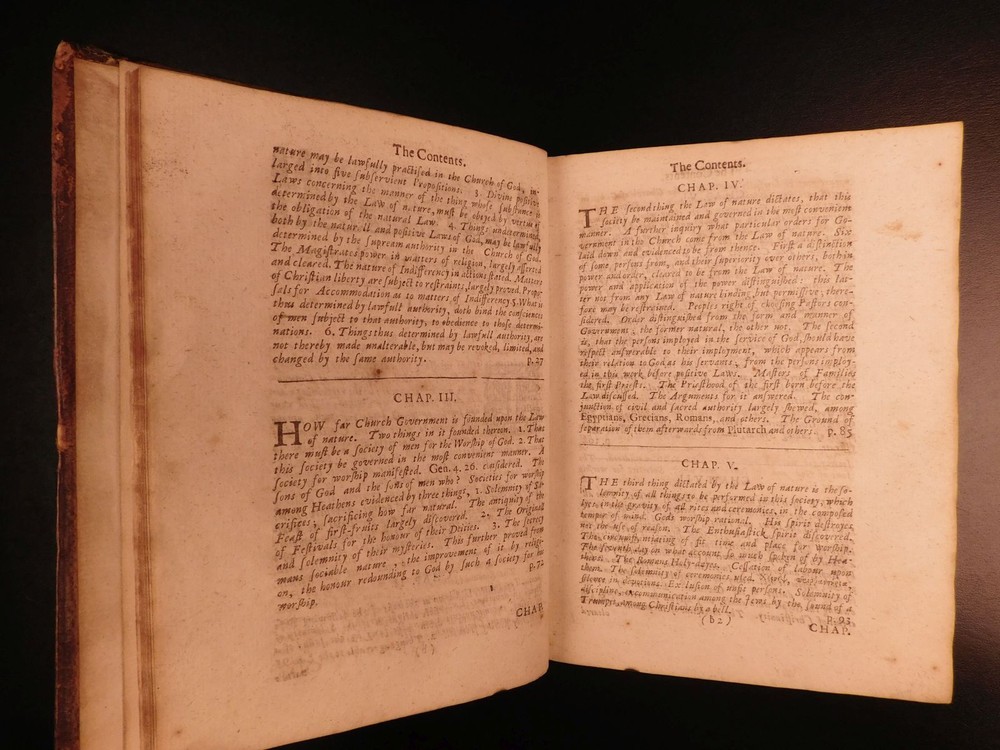 The Contents.
nature may be lawfully practised in the Church of God, in-
larged into five subservient Propositions. 3. Divine positive
Laws concerning the manner of the thing whose substance is
determined by the Law of nature, must be obeyed by vertue of
the obligation of the natural Law. 4. Things undetermined
both by the naturall and positive Laws of God, may be lawfully
determined by the supream authority in the Church of God.
The Magistrates power in matters of religion, largely asserted
and cleared. The nature of Indifferency in actions stated. Matters
of Christian liberty are subject to restraints, largely proved. Propo-
sals for Accommodation as to matters of Indifferency. 5. What is
thus determined by lawfull authority, doth bind the consciences
of men subject to that authority, to obedience to those determi-
nations. 6. Things thus determined by lawfull authority, are
not thereby made unalterable, but may be revoked, limited, and
changed by the same authority. p. 27
CHAP. III.
HOW far Church Government is founded upon the Law
of nature. Two things in it founded thereon. 1. That
there must be a society of men for the Worship of God. 2. That
this society be governed in the most convenient manner. A
society for worship manifested. Gen. 4. 26. considered. The
sons of God and the sons of men who? Societies for worship
among Heathens evidenced by three things, 1. Solemnity of Sa-
crifices, sacrificing how far natural. The antiquity of the
Feast of first-fruits largely discovered. 2. The Original
of Festivals for the honour of their Deities. 3. The secrecy
and solemnity of their mysteries. This further proved from
mans sociable nature, the improvement of it by religi-
on, the honour redounding to God by such a society for his
worship. p. 72
CHAP.
The Contents.
CHAP. IV.
THE second thing the Law of nature dictates, that this
society be maintained and governed in the most convenient
manner. A further inquiry what particular orders for Go-
vernment in the Church come from the Law of nature. Six
laid down and evidenced to be from thence. First a distinction
of some persons from, and their superiority over others, both in
power and order, cleared to be from the Law of nature. The
power and application of the power distinguished: this lat-
ter not from any Law of nature binding, but permissive; there-
fore may be restrained. Peoples right of choosing Pastors con-
sidered. Order distinguished from the form and manner of
Government, the former natural, the other not. The second
is, that the persons imployed in the service of God, should have
respect answerable to their imployment, which appears from
their relation to God as his servants, from the persons imploy-
ed in this work before positive Laws. Masters of Families
the first Priests. The Priesthood of the first born before the
Law discussed. The Arguments for it answered. The con-
junction of civil and sacred authority largely shewed, among
Egyptians, Grecians, Romans, and others. The Ground of
separation of them afterwards from Plutarch and others. p. 85
CHAP. V.
THE third thing dictated by the Law of nature is the so-
lemnity of all things to be performed in this society, which
lyes in the gravity of all rites and ceremonies, in the composed
temper of mind. Gods worship rational. His spirit destroyes
not the use of reason. The Enthusiastick spirit discovered.
The circumstantiating of fit time and place for worship.
The seventh day on what account so much spoken of by Hea-
thens. The Romans Holy-dayes. Cessation of labour upon
them. The solemnity of ceremonies used.
silence in devotions. Exclusion of unfit persons. Solemnity of
discipline, excommunication among the Jews by the sound of a
Trumpet, among Christians by a bell. p. 93
(b2)
CHAP.